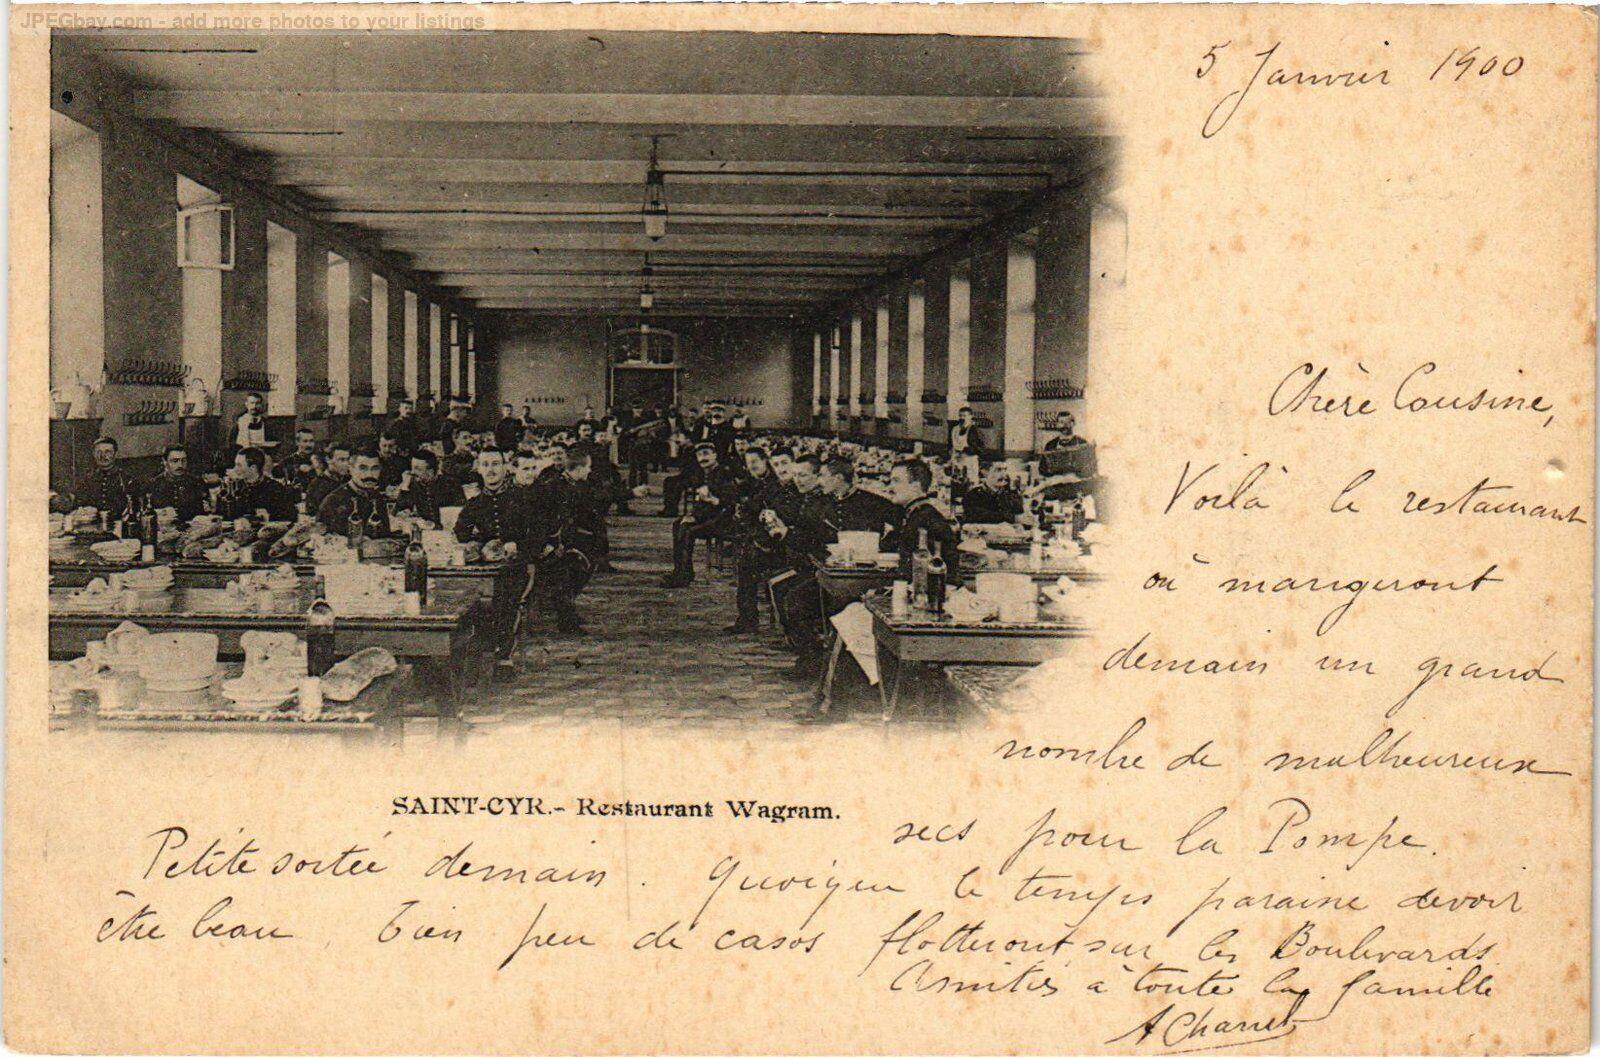 JPEGbay.com - add more photos to your listings
5 Janvier 1900
Chère Cousine,
Voilà le restaurant
où mangeront
demain un grand
nombre de malheureux
SAINT-CYR.- Restaurant Wagram.
secs pour la Pompe.
Petite sortie demain. Quoique le temps paraisse devoir
être beau, bien peu de casos flotteront sur les Boulevards.
Amitiés à toute la famille